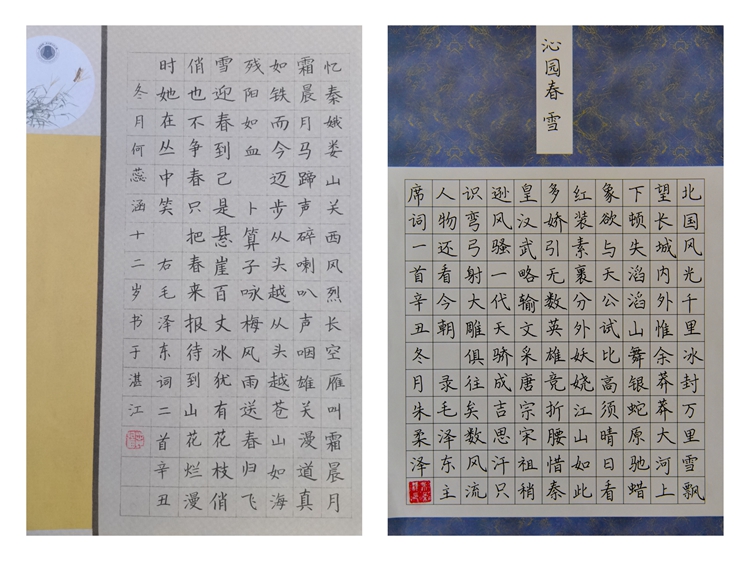 忆秦娥娄山关西风烈长空雁叫霜晨月
霜晨月马蹄声碎喇叭声咽雄关漫道真
如铁而今迈步从头越从头越苍山如海
残阳如血 卜算子咏梅风雨送春归飞
雪迎春到已是悬崖百丈冰犹有花枝俏
俏也不争春只把春来报待到山花烂漫
时她在丛中笑 右毛泽东词二首辛丑
冬月何蕊涵十二岁书于湛江
沁园春 雪
北国风光千里冰封万里雪飘
望长城内外惟余莽莽大河上
下顿失滔滔山舞银蛇原驰蜡
象欲与天公试比高须晴日看
红装素裹分外妖娆江山如此
多娇引无数英雄竞折腰惜秦
皇汉武略输文采唐宗宋祖稍
逊风骚一代天骄成吉思汗只
识弯弓射大雕俱往矣数风流
人物还看今朝 录毛泽东主
席词一首辛丑冬月朱柔泽